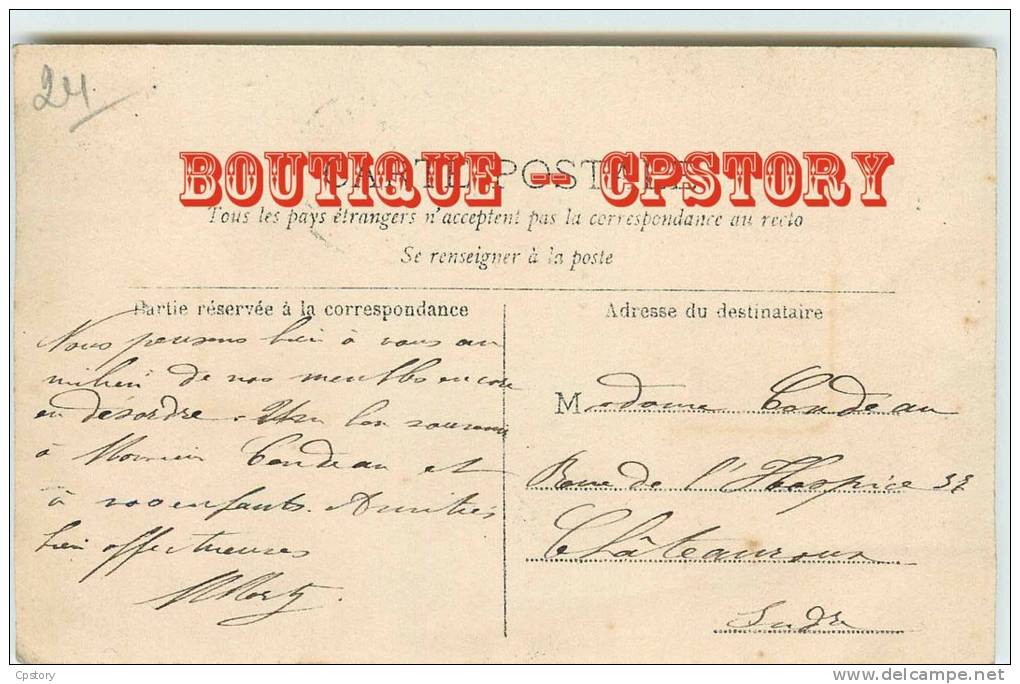 24
CARTE POSTALE
BOUTIQUE -- CPSTORY
Tous les pays étrangers n'acceptent pas la correspondance au recto
Se renseigner à la poste
Partie réservée à la correspondance
Nous pensons bien à vous au
milieu de nos meubles encore
en désordre. Un bon souvenir
à Monsieur Condeau et
à vos enfants. Amitiés
bien affectueuses
Adresse du destinataire
Madame Condeau
Rue de l'Hospice
Châteauroux
Indre
Cpstory
www.delcampe.net